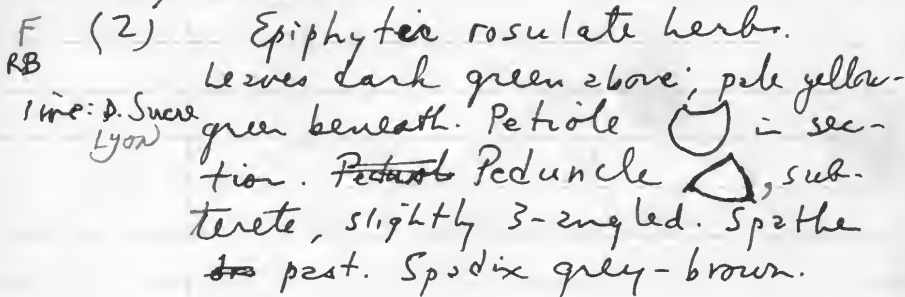 F (2) Epiphytic rosulate herbs.
RB Leaves dark green above; pale yellow-
1 ime: D. Sucre green beneath. Petiole in sec-
Lyon tion. Peduncle , sub-
terete, slightly 3-angled. Spathe
past. Spadix grey-brown.